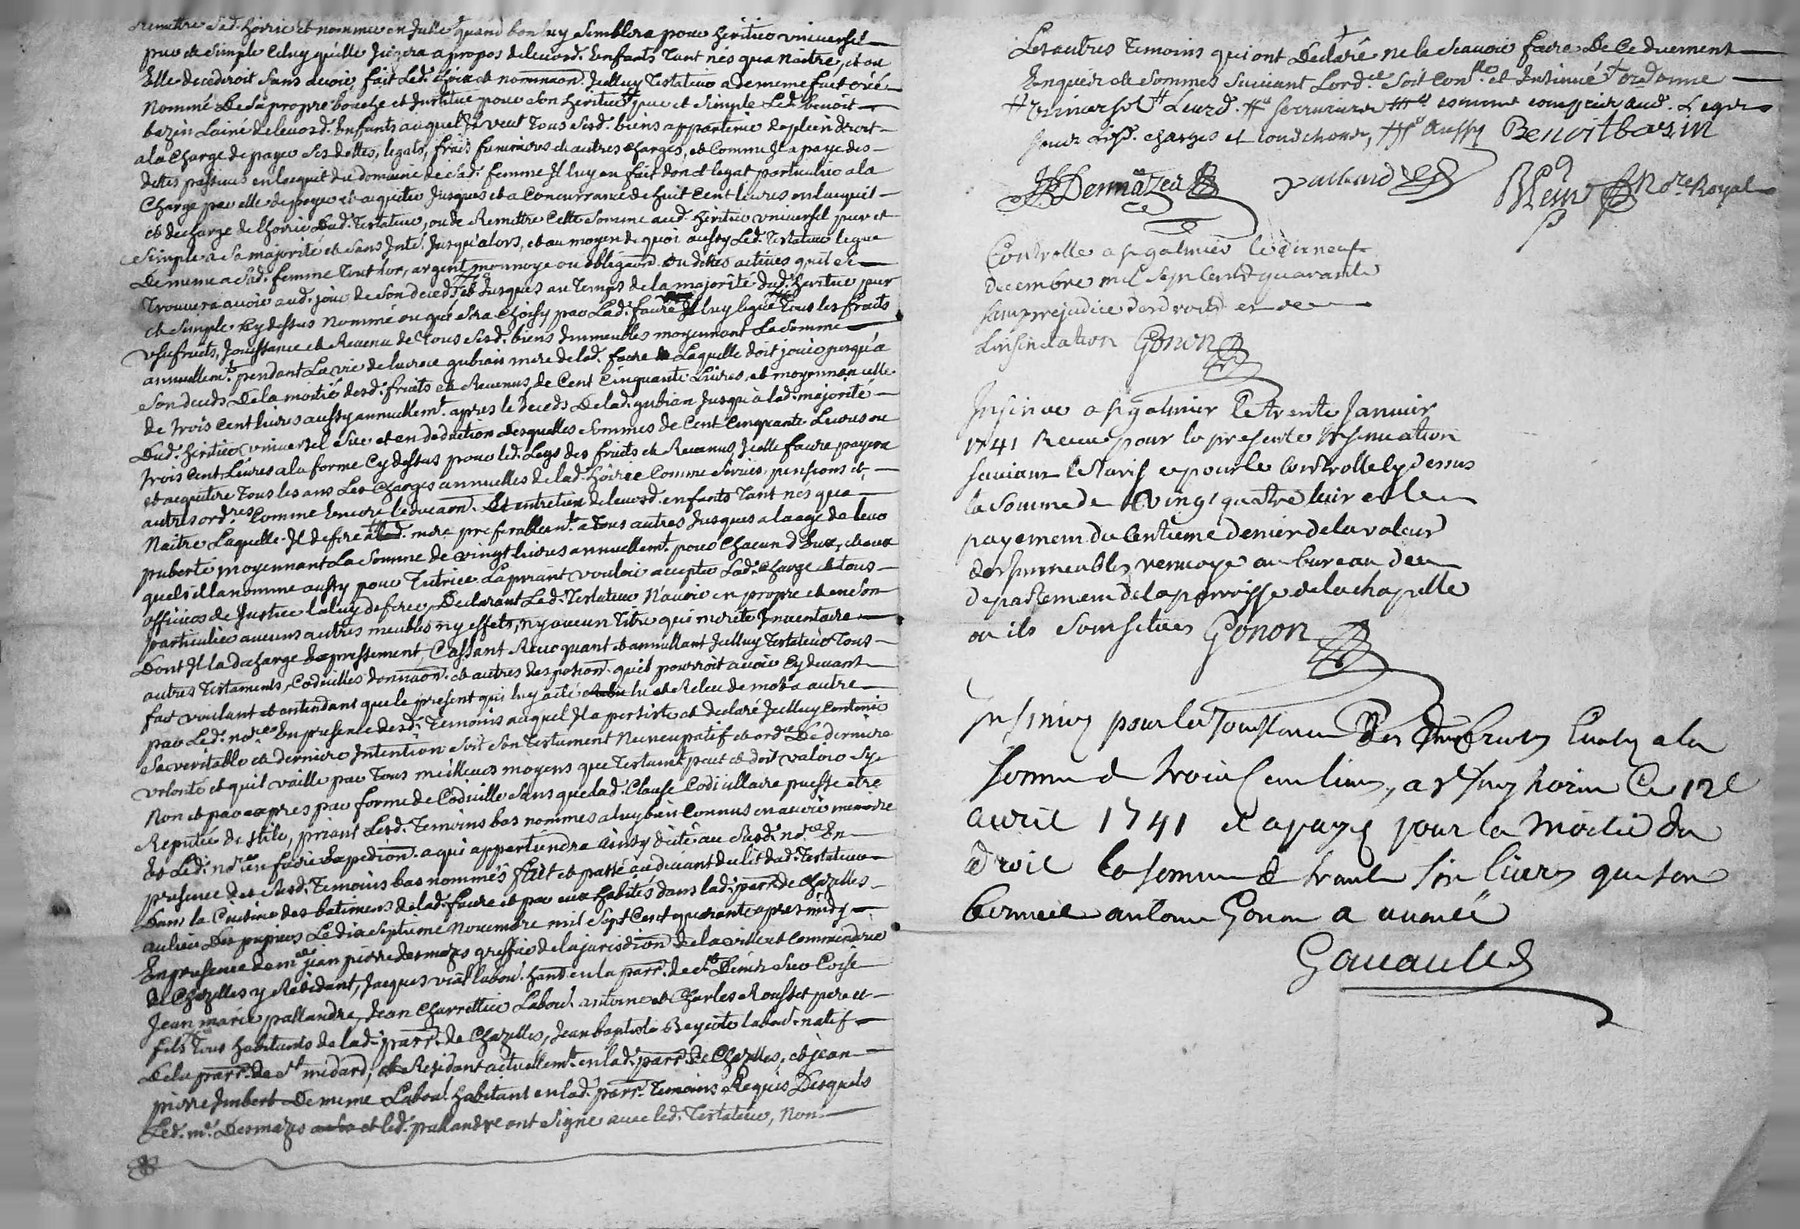 remettre sad. hoirie et nommer en Julle quand bon luy semblera pour heritier universel
pur et simple celuy qu'elle jugera a propos de leursd. Enfants tant nés qua Naitre, et ou
Elle decederoit sans avoir fait led. choix et nominaon. Jcelluy Testateur a de meme fait créé
Nommé De sa propre bouche et Jnstitué pour son heritier pur et simple Led. benoit
bazin Lainé de leursd. Enfants auquel Jl veut tous sesd. biens appartenir de plein droit
a la charge de payer ses dettes, legats, fraix funeraires et autres charges, et comme Jl a payé des
dettes passives en lacquit du domaine de sad. femme Jl luy en fait don et legat particulier a la
Charge par elle de payer et acquitter jusques et a concurrance de huit cent livres en lacquit
et decharge de lhoirie dud. Testateur, ou de Remettre cette somme aud. heritier universel pur et
simple a sa majorité et sans jnts. jusqu'alors, et au moyen de quoi aussy led. Testateur legue
De meme a sad. femme tout lor, argent monnoye ou obligaons. ou dettes actives quil se
trouvera avoir aud. jour de son deced et jusques au temps de la majorité dud. heritier pur
et simple cy dessus nommé ou qui sera choisy par lad. favre Jl luy legue tous les fruits
usufruits, jouissance et Revenu de tous sesd. biens immeubles moyennant la somme
annuellemt. pendant la vie de lucrece gubian mere de lad. favre laquelle doit jouir jusqu'a
son deceds de la moitié desd. fruits et Revenus de Cent Cinquante livres, et moyennant celle
de trois cent livres aussy annuellemt. apres le deceds de lad. gubian jusqu'a lad. majorité
Dud. heritier universel sur et en deduction desquelles sommes de Cent Cinquante Livres ou
trois cent Livres a la forme cy dessus pour led. Legs des fruits et Revenus Jcelle favre payera
et acquittera tous les ans les charges annuelles de lad. hoirie comme servis, pensions et
autres ordres. comme Encore leducaon. Et entretien de leursd. enfants tant nés qua
Naitre laquelle Jl defere a lad. mere preferablemt. a tous autres jusques a laage de leur
puberté moyennant La somme de vingt livres annuellemt. pour chacun d'Eux, et aux
quels il la nomme aussy pour Tutrice la priant vouloir accepter lad. charge et tous
officiers de Justice la luy deferer, Declarant led. Testateur N'avoir en propre et en son
particulier aucuns autres meubles ny effets, ny aucun titre qui merite Jnventaire
Dont Jl la decharge Expressement, Cassant Revocquant et annullant Jcelluy Testateur tous
autres Testaments, Codicilles donnaons. et autres disposions. quil pourroit avoir cy devant
fait voulant et entendant que le present qui luy a été lu et Releu de mot a autre
par led. nore. en presence desd. Temoins auquel Jl a persisté et declaré Jcelluy contenir
sa veritable et derniere Jntention soit son Testament Nuncupatif et ordre. De derniere
volonté et quil vaille par tous meilleurs moyens que Testamt. peut et doit valoir sy
Non et par apres par forme de Codicille sans que lad. Clause Codicillaire puisse etre
Reputée de stile, priant lesd. Temoins bas nommés a luy bien connus en avoir memoire
Et Led. nore. en faire Expedion. a qui appartiendra ainsy dicté aud. nore. En
presence des susd. Temoins bas nommés fait et passé au devant du lit dud. Testateur
Dans la Cuisine des batimens de lad. favre et par eux habités dans lad. parr. de Chazelles
au lieu Des pupiers Le dix septieme Novembre mil sept Cent quarante apres midy
En presence de me. jean pierre desmazes greffier de la jurisdion. de la ville et commanderie
de Chazelles y Residant, jacques vial labour. hant. en la parr. de St. Denis sur Coise
jean marie pallandre, jean Charrettier Labour. antoine et Charles Rousset pere et
fils tous habitants de lad. parr. de Chazelles, jean baptiste Beyente labour. natif
De la parr. de St. medard, et Residant actuellemt. en lad. parr. de Chazelles, et jean
pierre Jmbert De meme Labour. habitant en lad. parr. Temoins Requis Desquels
Led. me. Desmazes et led. pallandre ont signé avec led. Testateur, Non
Les autres Temoins qui ont Declaré ne le scavoir faire De ce duement
Enquis et sommés suivant Lordce. soit conllé. et Jnsinué
universel Leursd.
charges et Benoit bazin
Desmazes pallandre Nore. Royal
Controllé a st galmier le dix neuf
decembre mil sept cent quarante
sans prejudice des droits et de
linsinuation Gonon
Jnsinué a st galmier le trente Janvier
1741 Receu pour la presente insinuation
suivant le tarif et pour le Controlle cy dessus
la somme de vingt quatre livres et le
payement du centieme denier de la valeur
des immeubles renvoyé au bureau du
departement de la parroisse de la chapelle
ou ils sont situés Gonon
Jnsinué pour la jouissance Des fruits Evalué a la
somme de trois cent livres, a st ce 12e
avril 1741 et a payé pour la moitié du
Droit la somme de trente six livres que son
antoine Gonon a